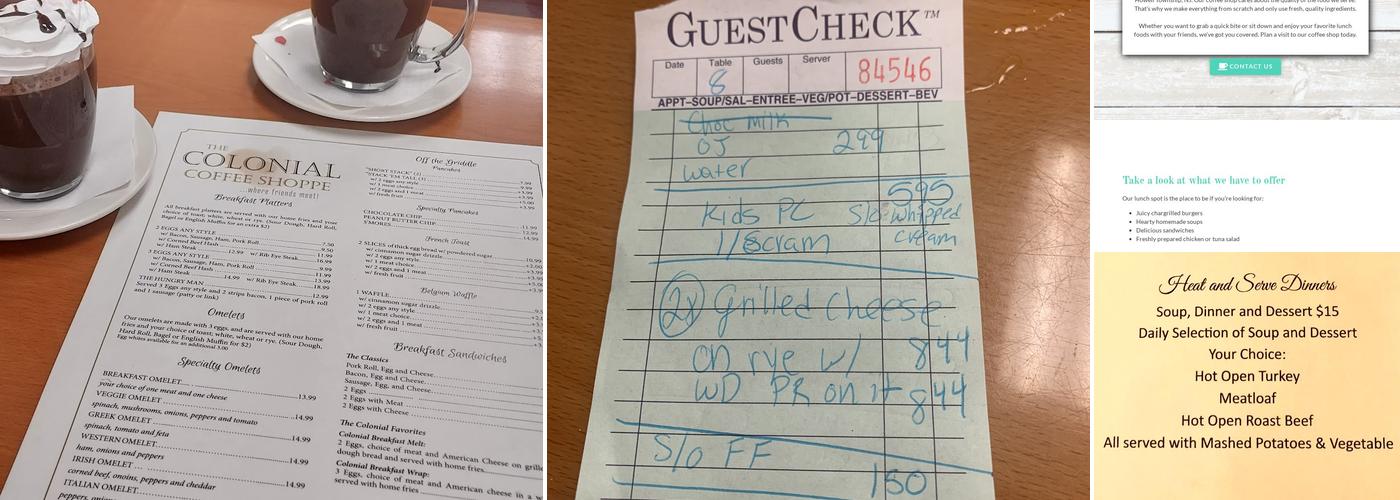 THE
COLONIAL
COFFEE SHOPPE
...where friends meet!
Breakfast Platters
All breakfast platters are served with our home fries and your
choice of toast; white, wheat or rye. (Sour Dough, Hard Roll,
Bagel or English Muffin for an extra $2)
2 EGGS ANY STYLE 7.50
w/ Bacon, Sausage, Ham, Pork Roll 9.50
w/ Corned Beef Hash 12.99 w/ Rib Eye Steak 16.99
w/ Ham Steak 11.99
3 EGGS ANY STYLE 9.99
w/ Bacon, Sausage, Ham, Pork Roll 11.99
w/ Corned Beef Hash 14.99 w/ Rib Eye Steak 18.99
w/ Ham Steak 13.99
THE HUNGRY MAN 12.99
Served 3 Eggs any style and 2 strips bacon, 1 piece of pork roll
and 1 sausage (patty or link)
Omelets
Our omelets are made with 3 eggs, and are served with our home
fries and your choice of toast; white, wheat or rye. (Sour Dough,
Hard Roll, Bagel or English Muffin for $2)
Egg whites available for an additional 3.00
Specialty Omelets
BREAKFAST OMELET 13.99
your choice of one meat and one cheese
VEGGIE OMELET 14.99
spinach, mushrooms, onions, peppers and tomato
GREEK OMELET 14.99
spinach, tomato and feta
WESTERN OMELET 14.99
ham, onions and peppers
IRISH OMELET 14.99
corned beef, onoins, peppers and cheddar
ITALIAN OMELET
peppers,
Off the Griddle
Pancakes
"SHORT STACK" (2) 7.99
"STACK 'EM TALL (3) 9.99
w/ 1 meat choice
w/ 2 eggs any style
w/ 2 eggs and 1 meat
w/ fresh fruit
Specialty Pancakes
CHOCOLATE CHIP 11.99
PEANUT BUTTER CHIP 12.99
S'MORES 14.99
French Toast
2 SLICES of thick egg bread w/ powdered sugar 10.99
w/ cinnamon sugar drizzle
w/ 2 eggs any style
w/ 1 meat choice
w/ 2 eggs and 1 meat
w/ fresh fruit
Belgium Waffle
1 WAFFLE
w/ cinnamon sugar drizzle
w/ 2 eggs any style
w/ 1 meat choice
w/ 2 eggs and 1 meat
w/ fresh fruit
Breakfast Sandwiches
The Classics
Pork Roll, Egg and Cheese
Bacon, Egg and Cheese
Sausage, Egg, and Cheese
2 Eggs
2 Eggs with Meat
2 Eggs with Cheese
The Colonial Favorites
Colonial Breakfast Melt:
2 Eggs, choice of meat and American Cheese on
dough bread and served with home fries
Colonial Breakfast Wrap:
3 Eggs, choice of meat and American cheese in a
served with home fries
GUESTCHECK™
Date Table Guests Server
8 84546
APPT–SOUP/SAL–ENTREE–VEG/POT–DESSERT–BEV
Choc milk
OJ 299
water
595
Kids PC S/o whipped
1/Scram cream
2x Grilled Cheese
on rye w/ 844
WD PR on it 844
S/o FF
150
That's why we make everything from scratch and only use fresh, quality ingredients.
Whether you want to grab a quick bite or sit down and enjoy your favorite lunch
foods with your friends, we've got you covered. Plan a visit to our coffee shop today.
CONTACT US
Take a look at what we have to offer
Our lunch spot is the place to be if you're looking for:
Juicy chargrilled burgers
Hearty homemade soups
Delicious sandwiches
Freshly prepared chicken or tuna salad
Heat and Serve Dinners
Soup, Dinner and Dessert $15
Daily Selection of Soup and Dessert
Your Choice:
Hot Open Turkey
Meatloaf
Hot Open Roast Beef
All served with Mashed Potatoes & Vegetable